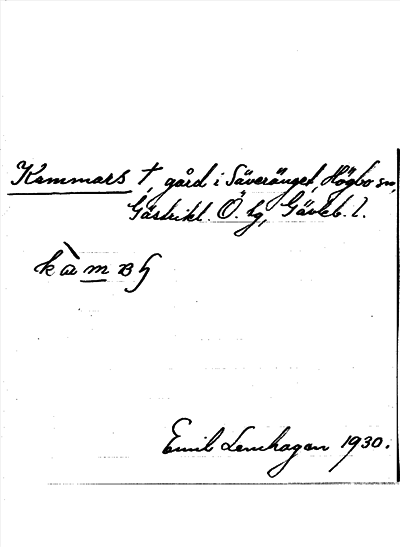 Kammars †, gård i Säveränget, Högbo sn,
Gästrikl. Ö. tg, Gävleb. l.
Emil Lenhagen 1930.